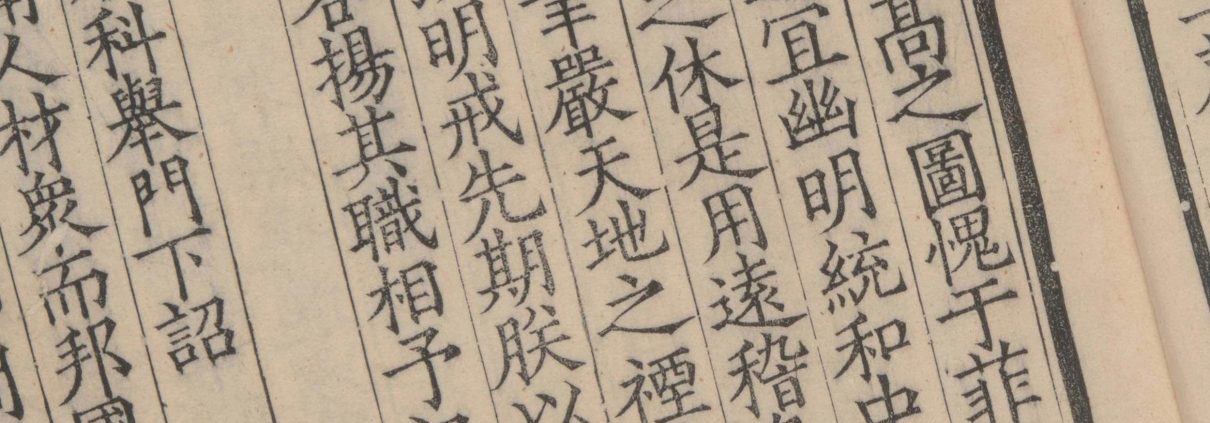 高之圖愧于菲
宜幽明統和中
之休是用遠稽
嚴天地之禋
明戒先期朕以
揚其職相予
科舉門下詔
人材衆而邦國